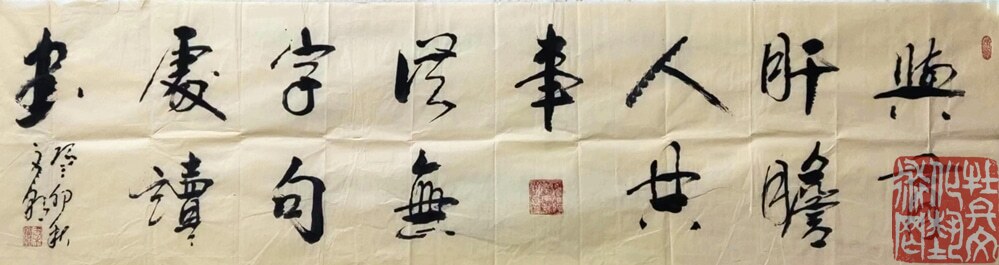 與
肝膽
人共
事
從無
字句
處讀
書
癸卯秋